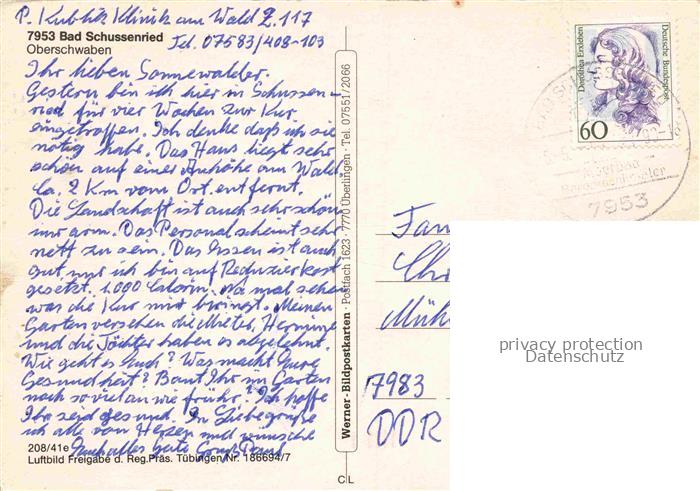 P. Kublik Klinik am Wald Z. 117
7953 Bad Schussenried
Oberschwaben
Tel. 07583/408-103
Ihr lieben Sonnewalder.
Gestern bin ich hier in Schussen-
ried für vier Wochen zur Kur
eingetroffen. Ich denke daß ich sie
nötig habe. Das Haus liegt sehr
schön auf einer Anhöhe am Wald
Ca. 2 Km vom Ort entfernt.
Die Landschaft ist auch sehr schön
nur arm. Das Personal scheint sehr
nett zu sein. Das Essen ist auch
gut, nur ich bin auf Reduzierkost
gesetzt. 1.000 Calorin. Na mal sehen
was die Kur mir bringt. Meinen
Garten versehen die Mieter, Hermine
und die Töchter haben es abgelehnt.
Wie geht es Euch? Was macht Eure
Gesundheit? Baut Ihr im Garten
noch so viel an wie früher? Ich hoffe
Ihr seid gesund. In Liebe grüße
ich alle vom Herzen und wünsche
Euch alles gute Gruß
208/41e
Luftbild Freigabe d. Reg.Präs. Tübingen Nr. 186694/7
Werner-Bildpostkarten · Postfach 1623 · 7770 Überlingen · Tel. 07551/2066
C L
Dorothea Erxleben
Deutsche Bundespost
60
7953
Fam
Chr
Mühl
7983
DDR
privacy protection
Datenschutz